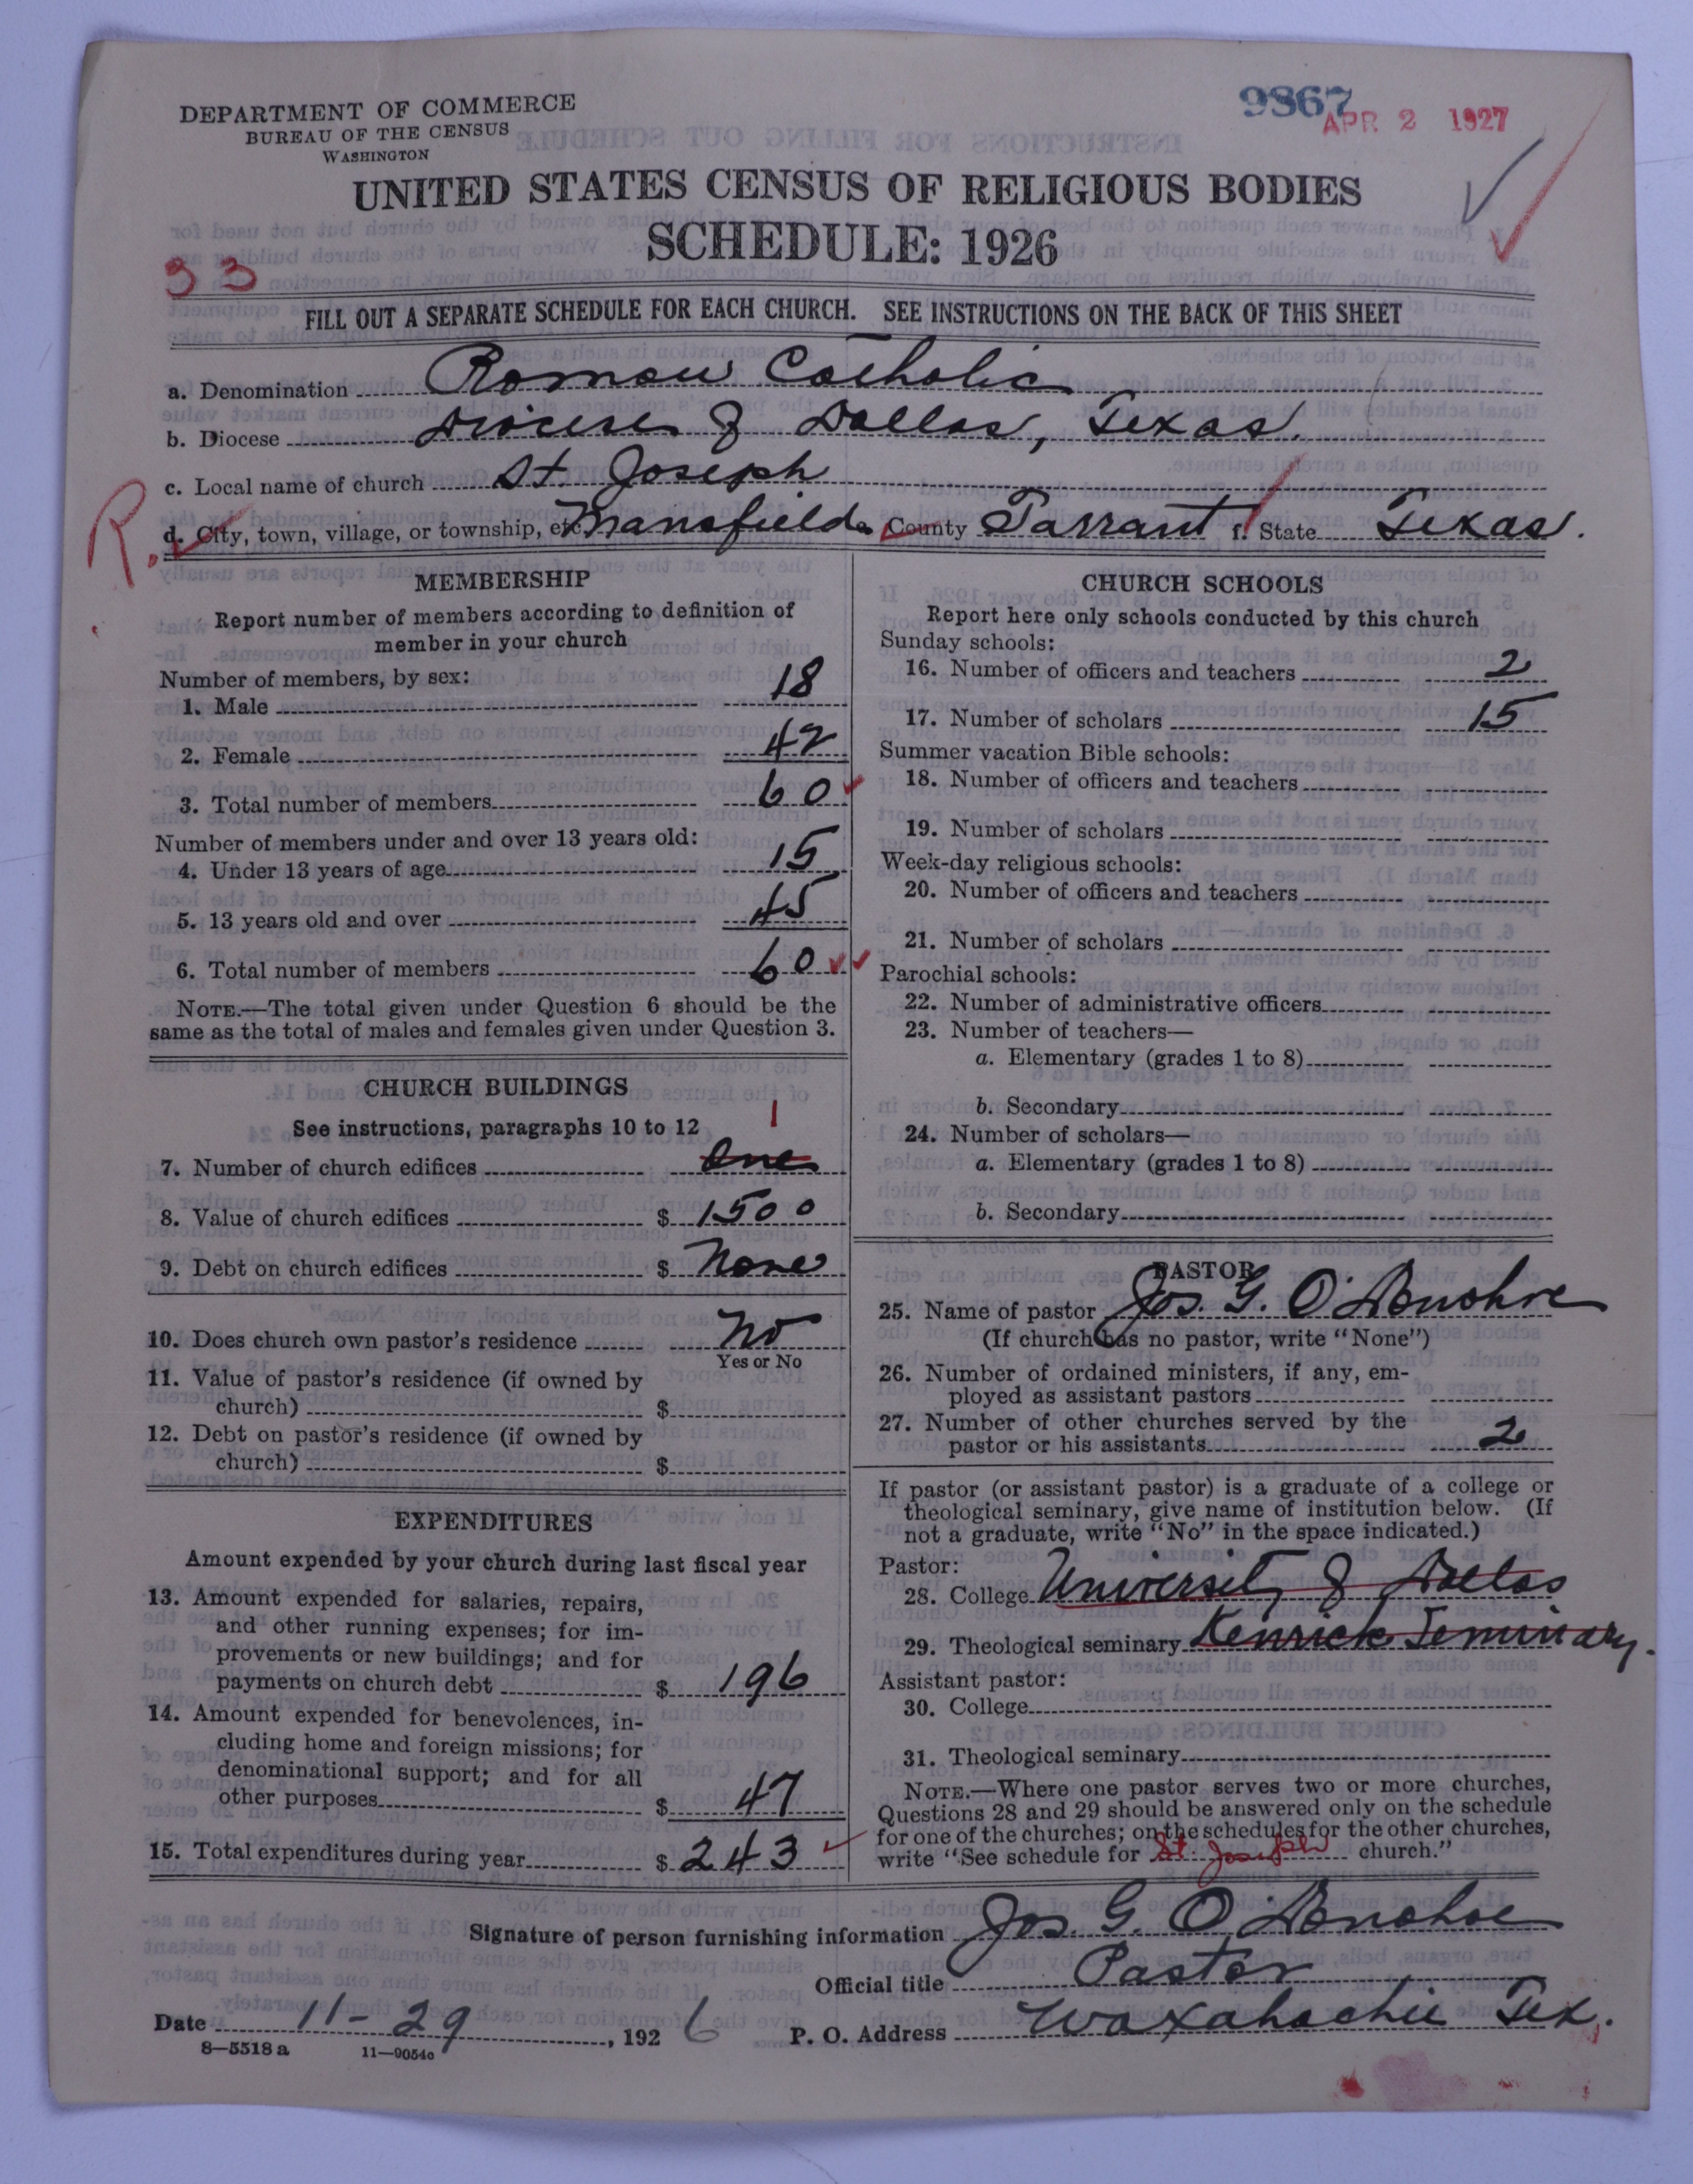 DEPARTMENT OF COMMERCE
BUREAU OF THE CENSUS
WASHINGTON
9867
APR 2 1927
UNITED STATES CENSUS OF RELIGIOUS BODIES
SCHEDULE: 1926
33
FILL OUT A SEPARATE SCHEDULE FOR EACH CHURCH. SEE INSTRUCTIONS ON THE BACK OF THIS SHEET
a. Denomination Roman Catholic
b. Diocese Diocese of Dallas, Texas.
c. Local name of church St Joseph
R.
d. City, town, village, or township, etc. Mansfield e. County Tarrant f. State Texas.
MEMBERSHIP
Report number of members according to definition of
member in your church
Number of members, by sex:
1. Male 18
2. Female 42
3. Total number of members 60
Number of members under and over 13 years old:
4. Under 13 years of age 15
5. 13 years old and over 45
6. Total number of members 60
NOTE.—The total given under Question 6 should be the
same as the total of males and females given under Question 3.
CHURCH BUILDINGS
See instructions, paragraphs 10 to 12
1
7. Number of church edifices One
8. Value of church edifices $ 1500
9. Debt on church edifices $ None
10. Does church own pastor's residence No
Yes or No
11. Value of pastor's residence (if owned by
church) $
12. Debt on pastor's residence (if owned by
church) $
EXPENDITURES
Amount expended by your church during last fiscal year
13. Amount expended for salaries, repairs,
and other running expenses; for im-
provements or new buildings; and for
payments on church debt $ 196
14. Amount expended for benevolences, in-
cluding home and foreign missions; for
denominational support; and for all
other purposes $ 47
15. Total expenditures during year $ 243
CHURCH SCHOOLS
Report here only schools conducted by this church
Sunday schools:
16. Number of officers and teachers 2
17. Number of scholars 15
Summer vacation Bible schools:
18. Number of officers and teachers
19. Number of scholars
Week-day religious schools:
20. Number of officers and teachers
21. Number of scholars
Parochial schools:
22. Number of administrative officers
23. Number of teachers—
a. Elementary (grades 1 to 8)
b. Secondary
24. Number of scholars—
a. Elementary (grades 1 to 8)
b. Secondary
PASTOR
25. Name of pastor Jos. G. O'Donohoe
(If church has no pastor, write "None")
26. Number of ordained ministers, if any, em-
ployed as assistant pastors
27. Number of other churches served by the
pastor or his assistants 2
If pastor (or assistant pastor) is a graduate of a college or
theological seminary, give name of institution below. (If
not a graduate, write "No" in the space indicated.)
Pastor:
28. College University of Dallas
29. Theological seminary Kenrick Seminary.
Assistant pastor:
30. College
31. Theological seminary
NOTE.—Where one pastor serves two or more churches,
Questions 28 and 29 should be answered only on the schedule
for one of the churches; on the schedules for the other churches,
write "See schedule for St. Joseph church."
Signature of person furnishing information Jos. G. O'Donohoe
Official title Pastor
Date 11-29, 1926 P. O. Address Waxahachie Tex.
8—5518 a 11—9054c